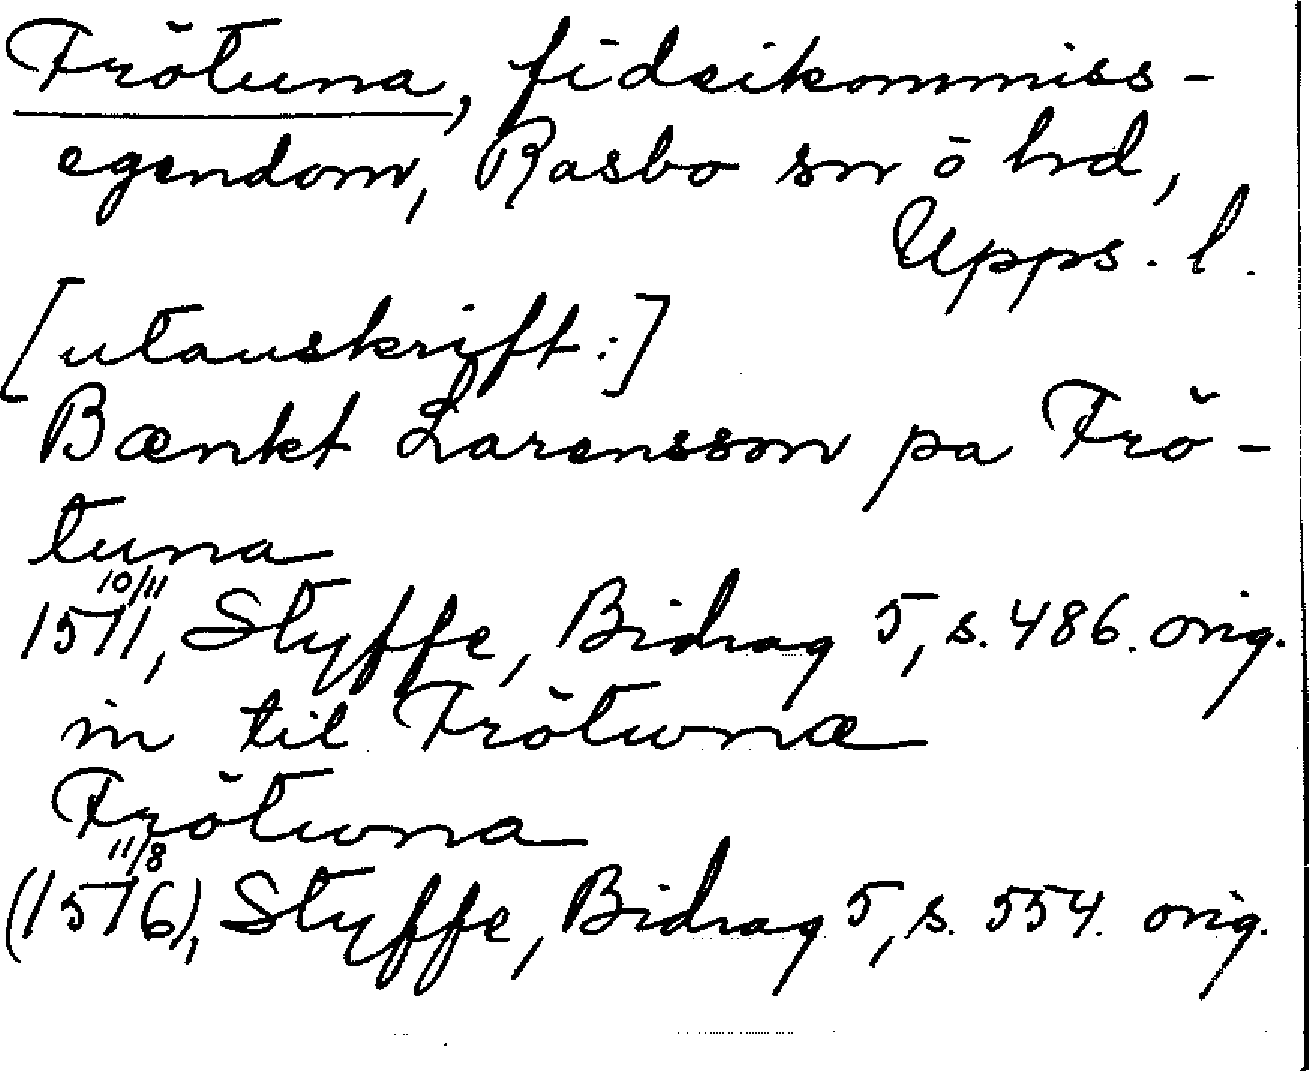 Frötuna, fideikommiss-
egendom, Rasbo sn o hd,
Upps. l.
[utanskrift:]
Bænkt Larensson pa Frö-
tuna
10/11
1511, Styffe, Bidrag 5, s. 486. orig.
in til Frötwnæ
Frötwna
11/8
(1516), Styffe, Bidrag 5, s. 554. orig.